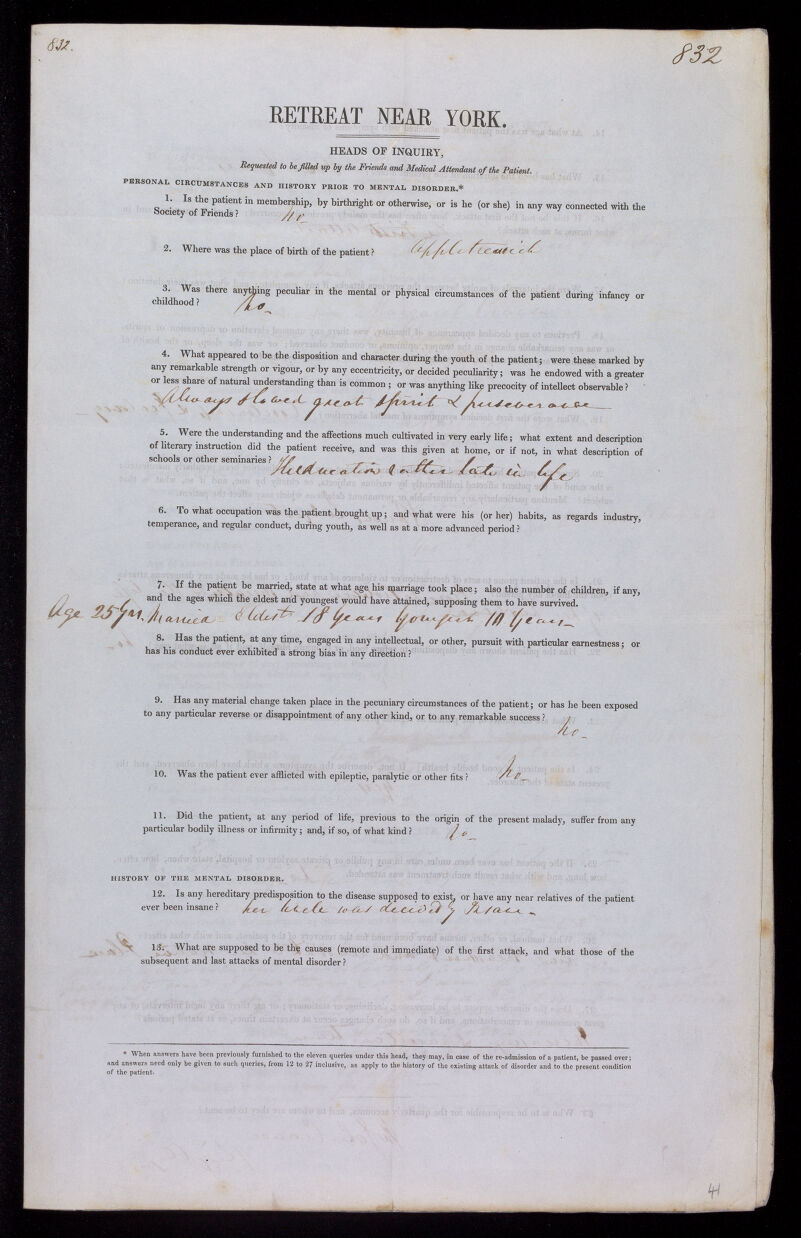 832.
832
RETREAT NEAR YORK.
HEADS OF INQUIRY,
Requested to be filled up by the Friends and Medical Attendant of the Patient.
PERSONAL CIRCUMSTANCES AND HISTORY PRIOR TO MENTAL DISORDER.*
1. Is the patient in membership, by birthright or otherwise, or is he (or she) in any way connected with the
Society of Friends? no
2. Where was the place of birth of the patient? Appletreewick
3. Was there anything peculiar in the mental or physical circumstances of the patient during infancy or
childhood? No
4. What appeared to be the disposition and character during the youth of the patient; were these marked by
any remarkable strength or vigour, or by any eccentricity, or decided peculiarity; was he endowed with a greater
or less share of natural understanding than is common; or was anything like precocity of intellect observable?
Always showed great spirit & perseverance
5. Were the understanding and the affections much cultivated in very early life; what extent and description
of literary instruction did the patient receive, and was this given at home, or if not, in what description of
schools or other seminaries? education rather late in life
6. To what occupation was the patient brought up; and what were his (or her) habits, as regards industry,
temperance, and regular conduct, during youth, as well as at a more advanced period?
7. If the patient be married, state at what age his marriage took place; also the number of children, if any,
and the ages which the eldest and youngest would have attained, supposing them to have survived.
Age 25 Yrs. Married eldest 18 years youngest years
8. Has the patient, at any time, engaged in any intellectual, or other, pursuit with particular earnestness; or
has his conduct ever exhibited a strong bias in any direction?
9. Has any material change taken place in the pecuniary circumstances of the patient; or has he been exposed
to any particular reverse or disappointment of any other kind, or to any remarkable success?
No
10. Was the patient ever afflicted with epileptic, paralytic or other fits? No
11. Did the patient, at any period of life, previous to the origin of the present malady, suffer from any
particular bodily illness or infirmity; and, if so, of what kind? No
HISTORY OF THE MENTAL DISORDER.
12. Is any hereditary predisposition to the disease supposed to exist, or have any near relatives of the patient
ever been insane? her Uncle was decidedly Insane
13. What are supposed to be the causes (remote and immediate) of the first attack, and what those of the
subsequent and last attacks of mental disorder?
* When answers have been previously furnished to the eleven queries under this head, they may, in case of the re-admission of a patient, be passed over;
and answers need only be given to such queries, from 12 to 27 inclusive, as apply to the history of the existing attack of disorder and to the present condition
of the patient.
41